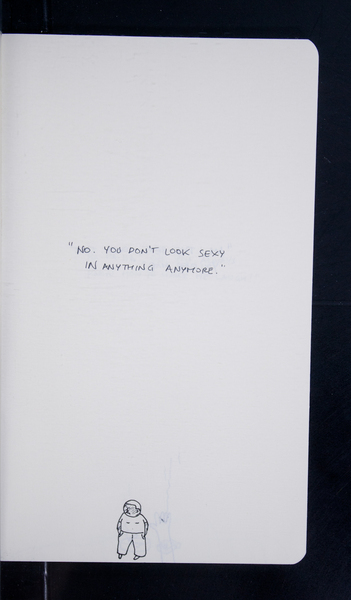 "NO. YOU DON'T LOOK SEXY
IN ANYTHING ANYMORE."